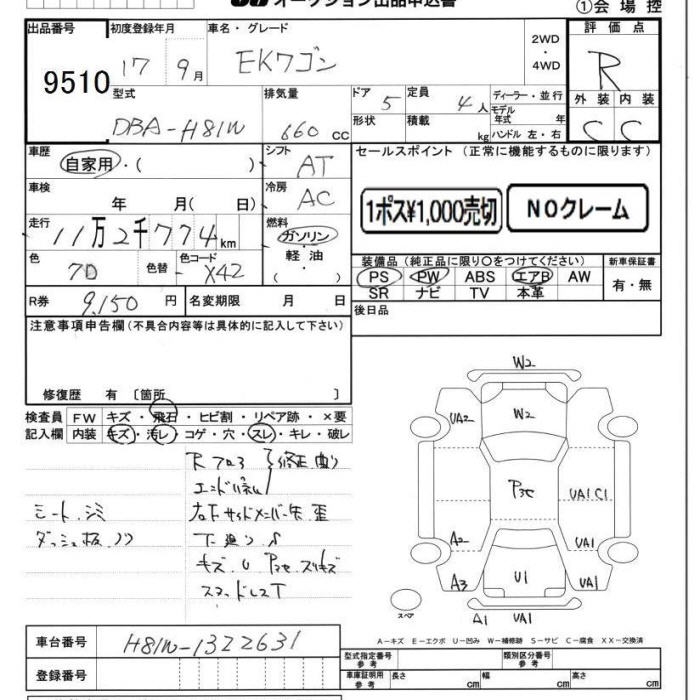 オークション出品申込書 ①会場控
出品番号 初度登録年月 車名・グレード 2WD ・ 4WD 評価点
9510 17年 9月 EKワゴン R
型式 排気量 ドア 5 定員 4人 ディーラー・並行 外装 内装
DBA-H81W 660cc 形状 積載 kg モデル年式 年 ハンドル 左・右 C C
車歴 自家用・( ) シフト AT セールスポイント (正常に機能するものに限ります)
車検 年 月( 日) 冷房 AC 1ポス¥1,000売切 NOクレーム
走行 11万2千774km 燃料 ガソリン・軽油・( )
色 色替 色コード X42 装備品 (純正品に限り○をつけてください) 新車保証書
PS PW ABS エアB AW 有・無
SR ナビ TV 本革
R券 9,150円 名変期限 月 日 後日品
注意事項申告欄(不具合内容等は具体的に記入して下さい)
修復歴 有 〔箇所 〕
検査員 FW キズ・飛石・ヒビ割・リペア跡・×要
記入欄 内装 キズ・汚レ・コゲ・穴・スレ・キレ・破レ
エンドパネル
シート シミ
下廻り
キズ U
W2
UA2 W2
UA1 C1
A2 UA1
A3 U1 UA1
スペア A1 UA1
A－キズ E－エクボ U－凹み W－補修跡 S－サビ C－腐食 XX－交換済
車台番号 H81W-1322631 型式指定番号 参考 類別区分番号 参考
登録番号 車庫証明用 参考 長さ cm 幅 cm 高さ cm